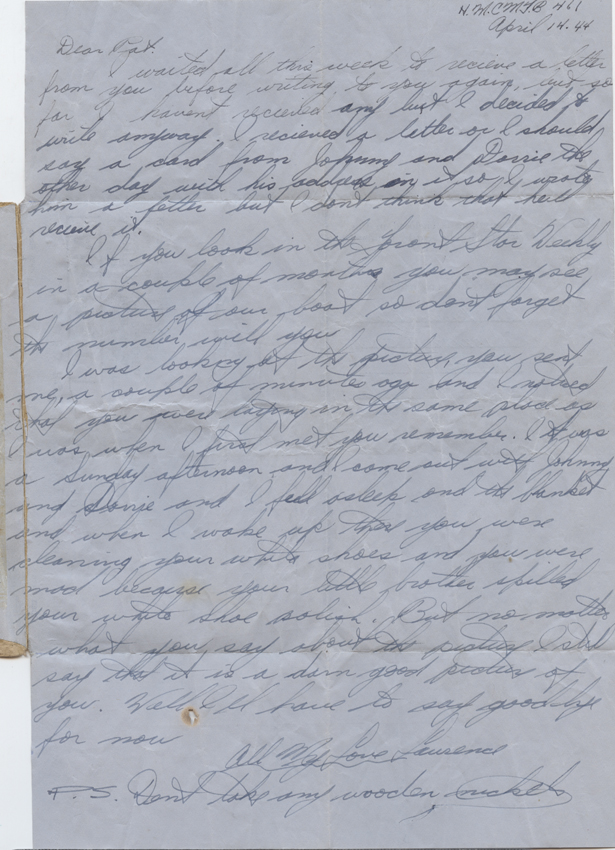 H.M.C.M.T.B 461
April 14.44
Dear Pat.
I waited all this week to recieve a letter
from you before writing to you again, but so
far I havent recieved any but I decided to
write anyway. I recieved a letter or I should
say a card from Johnny and Dorrie the
other day with his address on it so I wrote
him a letter but I don't think that he'll
recieve it.
If you look in the Toront Star Weekly
in a couple of months you may see
a picture of our boat so dont forget
the number will you
I was looking at the picture, you sent
me, a couple of minutes ago and I noticed
that you were laying in the same place as
I was when I first met you remember. It was
a Sunday afternoon and I come out with Johnny
and Dorrie and I feel asleep and the blanket
and when I woke up there you were
cleaning your white shoes and you were
mad because your little brother spilled
your white shoe polish. But no matter
what you say about the picture I still
say that it is a darn good picture of
you. Well I'll have to say goodbye
for now
All My Love Laurence
P.S. Dont take any wooden nickels